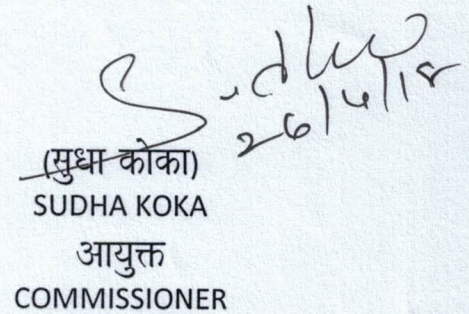 Sudha
26/4/18
(सुधा कोका)
SUDHA KOKA
आयुक्त
COMMISSIONER